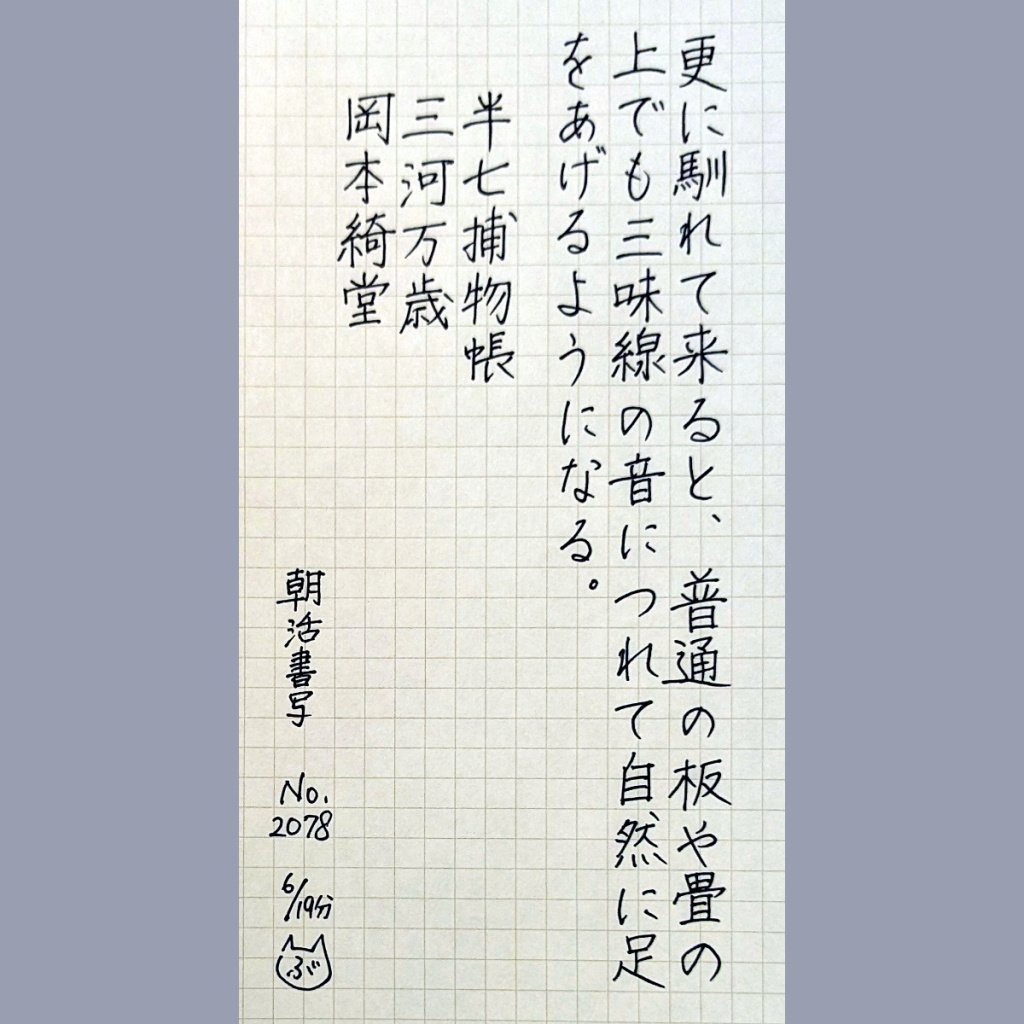 更に馴れて来ると、普通の板や畳の
上でも三味線の音につれて自然に足
をあげるようになる。
半七捕物帳
三河万歳
岡本綺堂
朝活書写 No.2078 6/19分 ぶ